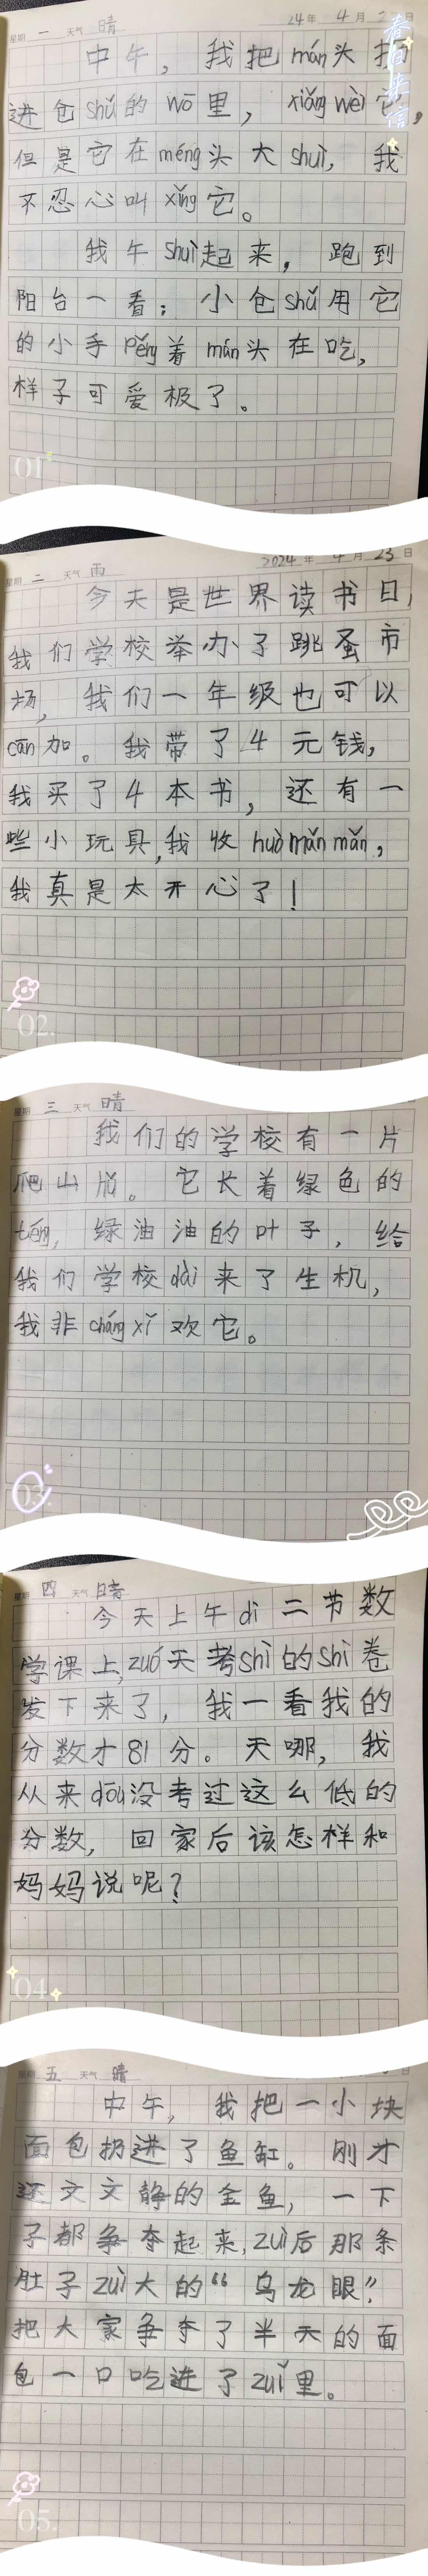 星期 一 天气 晴 24年 4月 2 日
中午，我把mán头扔
进仓shǔ的wō里，xiǎng wèi它，
但是它在méng头大shuì，我
不忍心叫xǐng它。
我午shuì起来，跑到
阳台一看；小仓shǔ用它
的小手pěng着mán头在吃，
样子可爱极了。
01
星期 二 天气 雨 2024年 4月 23日
今天是世界读书日，
我们学校举办了跳蚤市
场，我们一年级也可以
cān加。我带了4元钱，
我买了4本书，还有一
些小玩具，我收huò mǎn mǎn，
我真是太开心了！
02.
星期 三 天气 晴
我们的学校有一片
爬山虎。它长着绿色的
téng，绿油油的叶子，给
我们学校dài来了生机，
我非cháng xǐ欢它。
03.
星期 四 天气 晴
今天上午dì二节数
学课上，zuó天考shì的shì卷
发下来了，我一看我的
分数才81分。天哪，我
从来dōu没考过这么低的
分数，回家后该怎样和
妈妈说呢？
04
星期 五 天气 晴 日
中午，我把一小块
面包扔进了鱼缸。刚才
还文文静的金鱼，一下
子都争夺起来，zuì后那条
肚子zuì大的“乌龙眼”
把大家争夺了半天的面
包一口吃进了zuǐ里。
05.